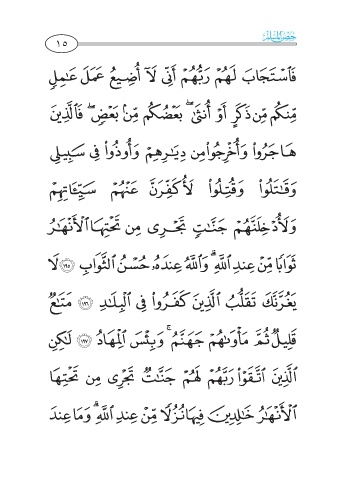 حصن المسلم
١٥
فَٱسْتَجَابَ لَهُمْ رَبُّهُمْ أَنِّي لَآ أُضِيعُ عَمَلَ عَٰمِلٍ
مِّنكُم مِّن ذَكَرٍ أَوْ أُنثَىٰ ۖ بَعْضُكُم مِّنۢ بَعْضٍ ۖ فَٱلَّذِينَ
هَاجَرُوا۟ وَأُخْرِجُوا۟ مِن دِيَٰرِهِمْ وَأُوذُوا۟ فِي سَبِيلِي
وَقَٰتَلُوا۟ وَقُتِلُوا۟ لَأُكَفِّرَنَّ عَنْهُمْ سَيِّـَٔاتِهِمْ
وَلَأُدْخِلَنَّهُمْ جَنَّٰتٍ تَجْرِي مِن تَحْتِهَا ٱلْأَنْهَٰرُ
ثَوَابًا مِّنْ عِندِ ٱللَّهِ ۗ وَٱللَّهُ عِندَهُۥ حُسْنُ ٱلثَّوَابِ ١٩٥ لَا
يَغُرَّنَّكَ تَقَلُّبُ ٱلَّذِينَ كَفَرُوا۟ فِي ٱلْبِلَٰدِ ١٩٦ مَتَٰعٌ
قَلِيلٌ ثُمَّ مَأْوَىٰهُمْ جَهَنَّمُ ۚ وَبِئْسَ ٱلْمِهَادُ ١٩٧ لَٰكِنِ
ٱلَّذِينَ ٱتَّقَوْا۟ رَبَّهُمْ لَهُمْ جَنَّٰتٌ تَجْرِي مِن تَحْتِهَا
ٱلْأَنْهَٰرُ خَٰلِدِينَ فِيهَا نُزُلًا مِّنْ عِندِ ٱللَّهِ ۗ وَمَا عِندَ